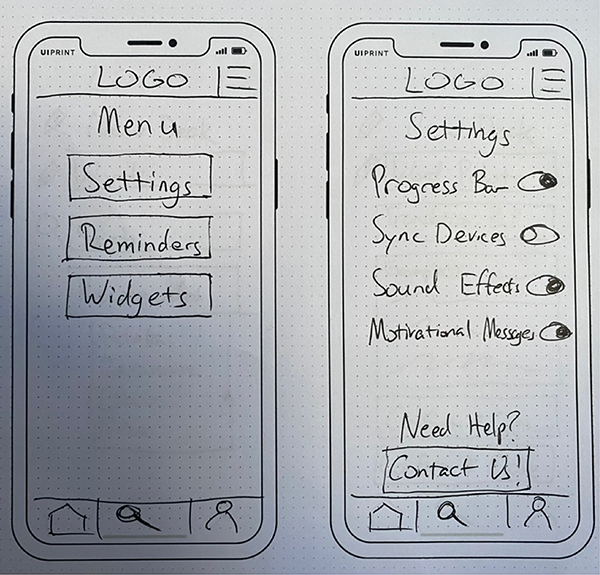 UIPRINT
LOGO
Menu
Settings
Reminders
Widgets
UIPRINT
LOGO
Settings
Progress Bar
Sync Devices
Sound Effects
Motivational Messages
Need Help?
Contact Us!